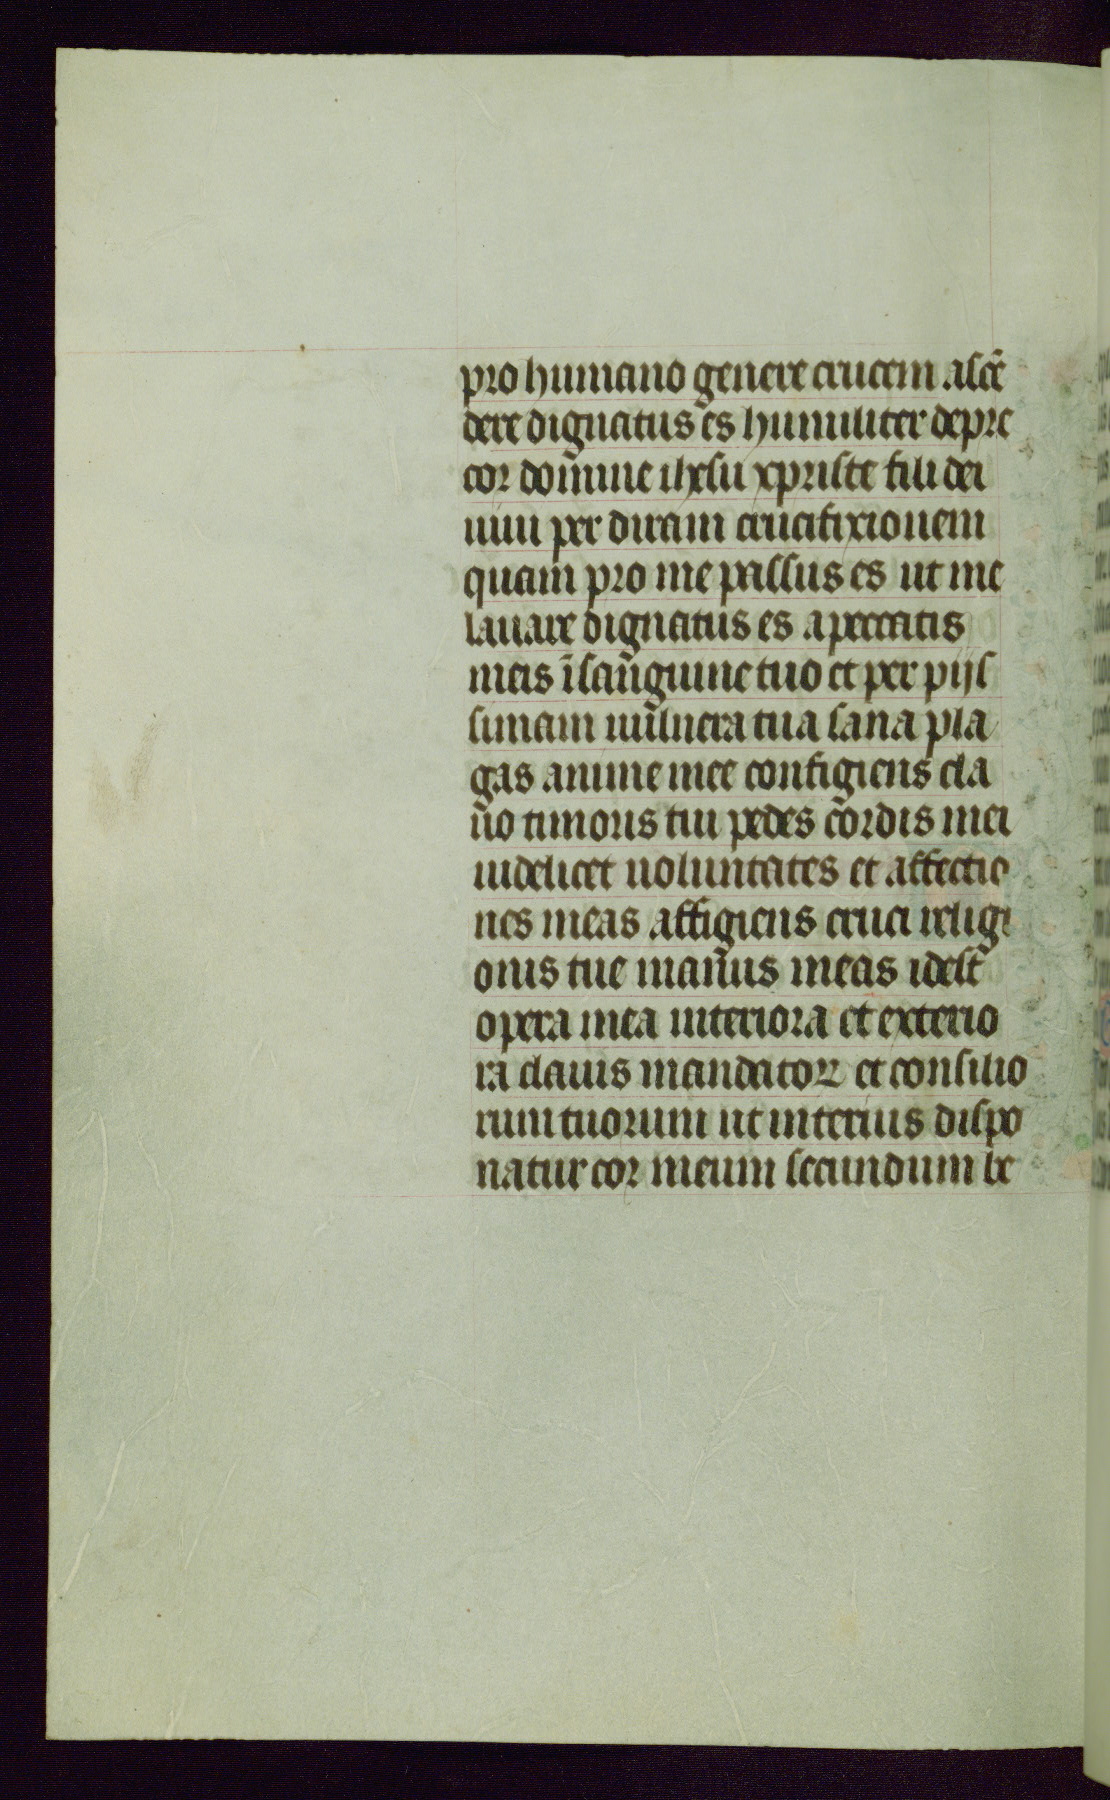 pro humano genere crucem ascē
dere dignatus es humiliter depre
cor domine ihesu xpriste fili dei
uiui per diram crucifixionem
quam pro me passus es ut me
lauare dignatus es a peccatis
meis ī sanguine tuo et per pijs
simam uulnera tua sana pla
gas anime mee configiens cla
uo timoris tui pedes cordis mei
uidelicet uoluntates et affectio
nes meas affigiens cruci religi
onis tue manus meas idest
opera mea interiora et exterio
ra clauis mandatoꝝ et consilio
rum tuorum ut interius dispo
natur cor meum secundum be